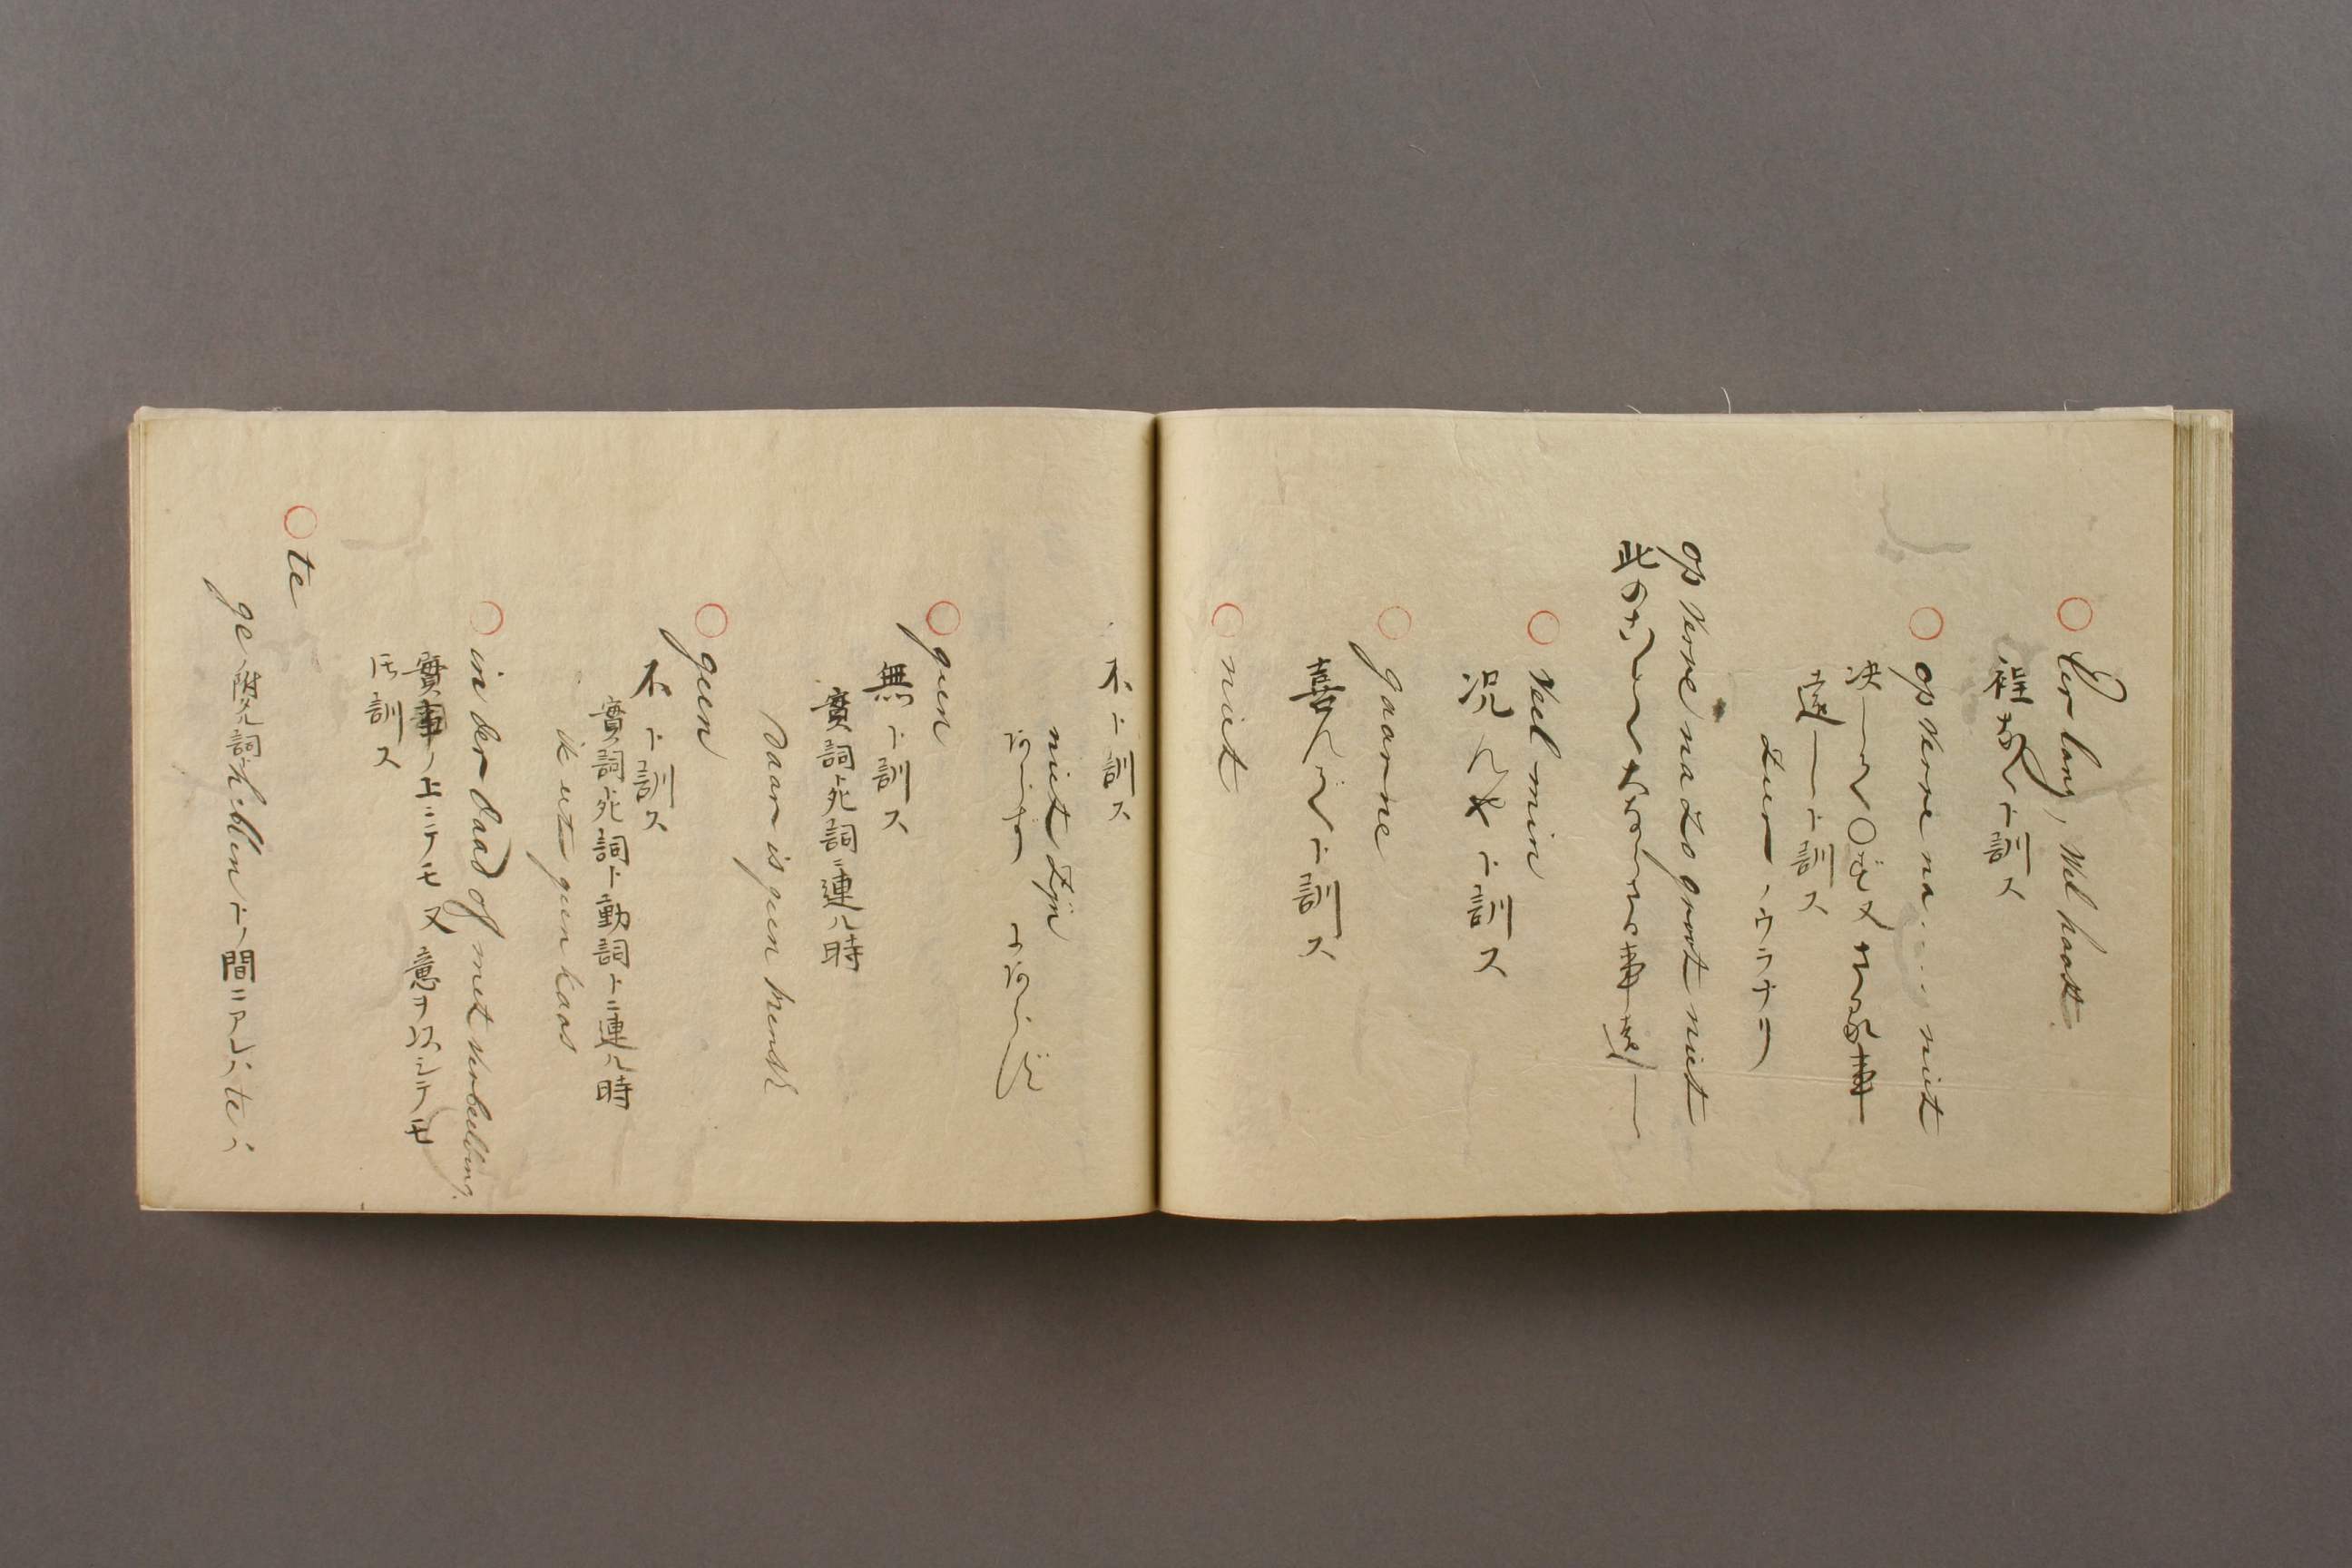 Eer lang, Wel haast.
程なくト訓ス
op verre na . . . . niet
决して〇ず又する事
遠しト訓ス
zeer ノウラナリ
op verre na zo groot niet
此のごとく大なる事遠し
Veel min
况んやト訓ス
gaarne
喜んでト訓ス
niet
不ト訓ス
niet zyn
geen
無ト訓ス
實詞ト死詞ニ連ル時
daar is geen mensch
geen
不ト訓ス
實詞死詞ト動詞トニ連ル時
ik eet geen kaas
in der daad of met verbeelding.
實事ノ上ニテモ又意ヲ以シテモ
ト訓ス
te
geノ附タル詞ト hebben トノ間ニアレハ te ハ